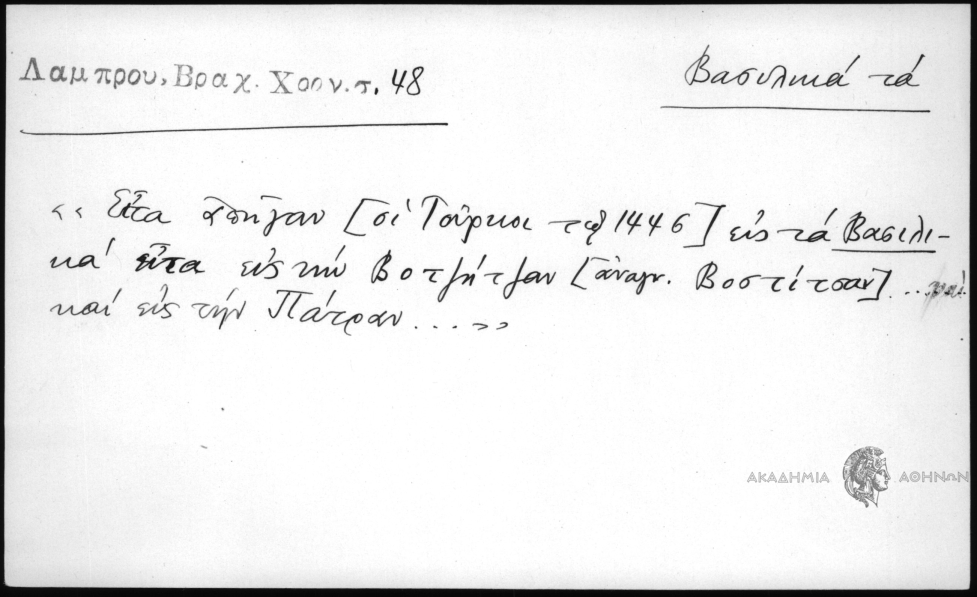 Λαμπρου, Βραχ. Χρον. τ. 48
Βασιλικά τά
«Εἶτα ἐπῆγαν [οἱ Τοῦρκοι τῷ 1446] εἰς τά Βασιλι-
κά εἶτα εἰς τήν Βοτζήτζαν [ἀναγν. Βοστίτσαν] ...
καί εἰς τήν Πάτραν ....»
ΑΚΑΔΗΜΙΑ ΑΘΗΝΩΝ